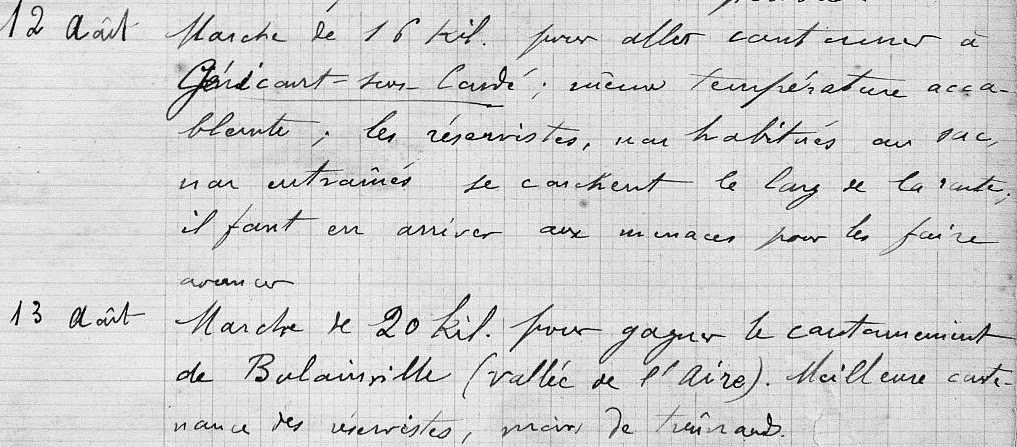 12 Août Marche de 16 kil. pour aller cantonner à
Génicourt-sous-Condé ; même température acca-
blante ; les réservistes, non habitués au sac,
non entraînés se couchent le long de la route ;
il faut en arriver aux menaces pour les faire
avancer
13 Août Marche de 20 kil. pour gagner le cantonnement
de Bulainville (vallée de l'Aire). Meilleure conte-
nance des réservistes, moins de traînards.